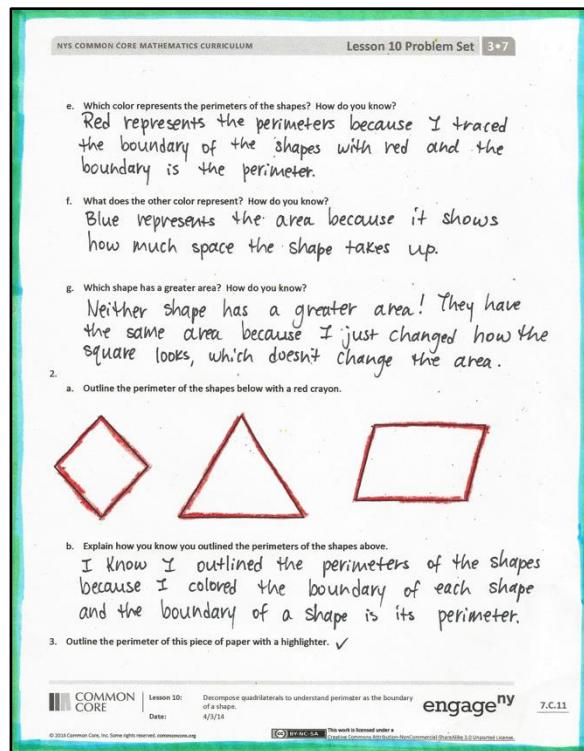 NYS COMMON CORE MATHEMATICS CURRICULUM
Lesson 10 Problem Set 3•7
e. Which color represents the perimeters of the shapes? How do you know?
Red represents the perimeters because I traced
the boundary of the shapes with red and the
boundary is the perimeter.
f. What does the other color represent? How do you know?
Blue represents the area because it shows
how much space the shape takes up.
g. Which shape has a greater area? How do you know?
Neither shape has a greater area! They have
the same area because I just changed how the
square looks, which doesn't change the area.
2.
a. Outline the perimeter of the shapes below with a red crayon.
b. Explain how you know you outlined the perimeters of the shapes above.
I know I outlined the perimeters of the shapes
because I colored the boundary of each shape
and the boundary of a shape is its perimeter.
3. Outline the perimeter of this piece of paper with a highlighter. ✓
COMMON
CORE
Lesson 10:
Decompose quadrilaterals to understand perimeter as the boundary
of a shape.
Date:
4/3/14
engage ny
7.C.11
© 2014 Common Core, Inc. Some rights reserved. commoncore.org
CC BY-NC-SA
This work is licensed under a
Creative Commons Attribution-NonCommercial-ShareAlike 3.0 Unported License.